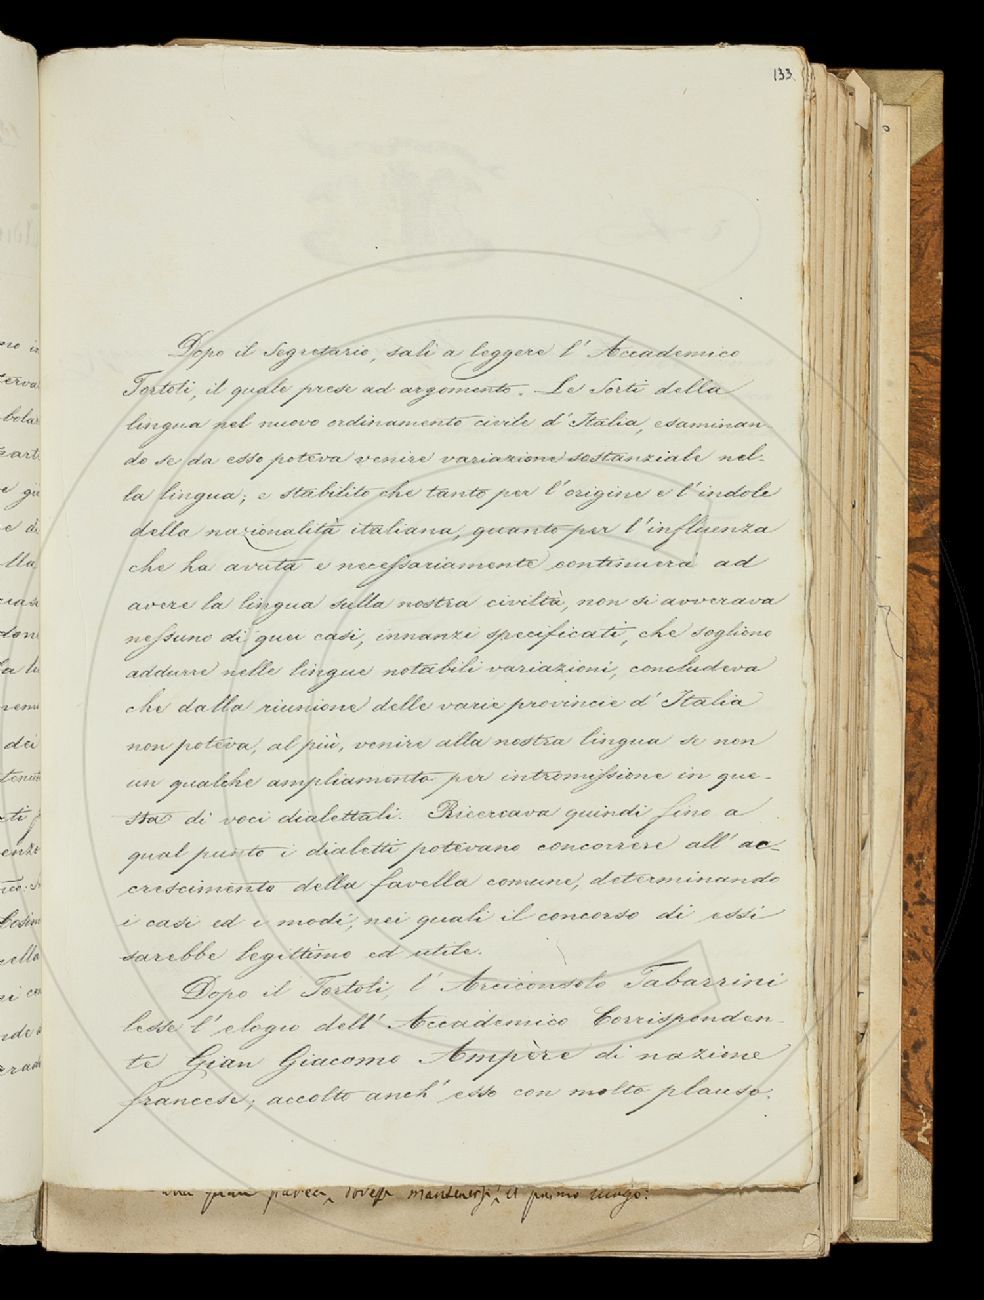 133
Dopo il Segretario, salì a leggere l' Accademico
Tortoli, il quale prese ad argomento. Le Sorti della
lingua nel nuovo ordinamento civile d' Italia, esaminan-
do se da esso poteva venire variazione sostanziale nel-
la lingua; e stabilito che tanto per l' origine e l' indole
della nazionalità italiana, quanto per l' influenza
che ha avuta e necessariamente continuerà ad
avere la lingua sulla nostra civiltà, non si avverava
nessuno di quei casi, innanzi specificati, che sogliono
addurre nelle lingue notabili variazioni, concludeva
che dalla riunione delle varie provincie d' Italia
non poteva, al più, venire alla nostra lingua se non
un qualche ampliamento per intromissione in que-
sta di voci dialettali. Ricercava quindi fino a
qual punto i dialetti potevano concorrere all' ac-
crescimento della favella comune, determinando
i casi ed i modi, nei quali il concorso di essi
sarebbe legittimo ed utile.
Dopo il Tortoli, l' Arciconsolo Tabarrini
lesse l' elogio dell' Accademico Corrisponden-
te Gian Giacomo Ampère di nazione
francese; accolto anch' esso con molto plauso.
primo luogo.